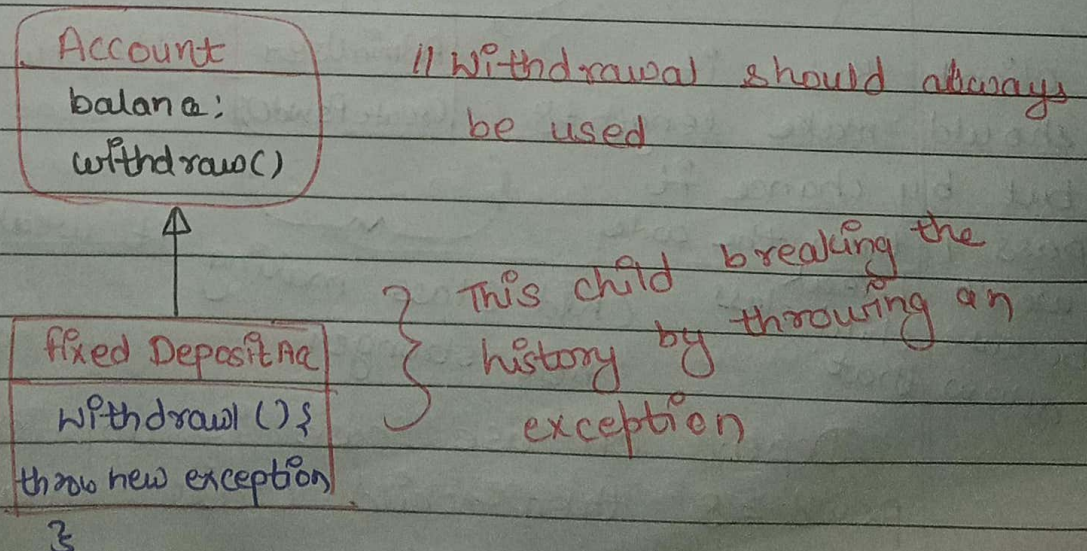 Account
balance;
withdraw()
// Withdrawal should always
be used
fixed DepositAc
withdrawl () {
throw new exception
}
This child breaking the
history by throwing an
exception